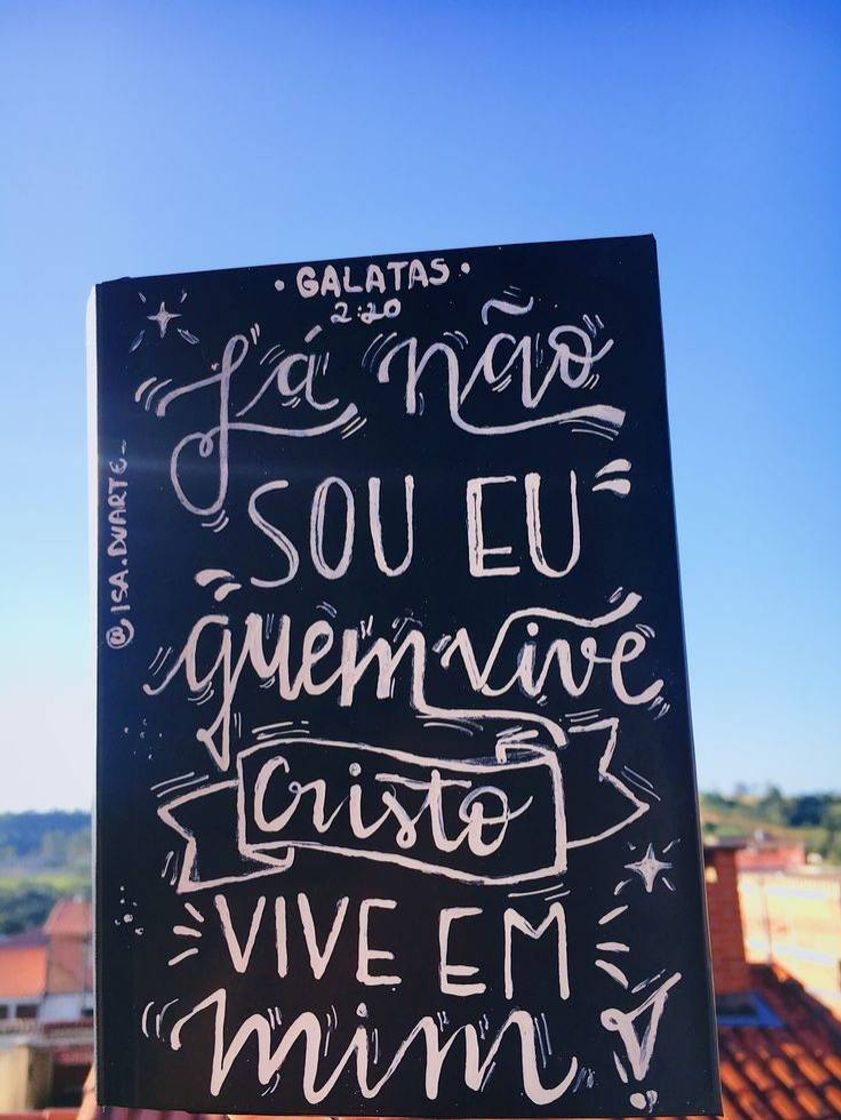 • GALATAS •
2:20
Já não
SOU EU
quem vive
Cristo
VIVE EM
mim!
@ISA.DUARTE_